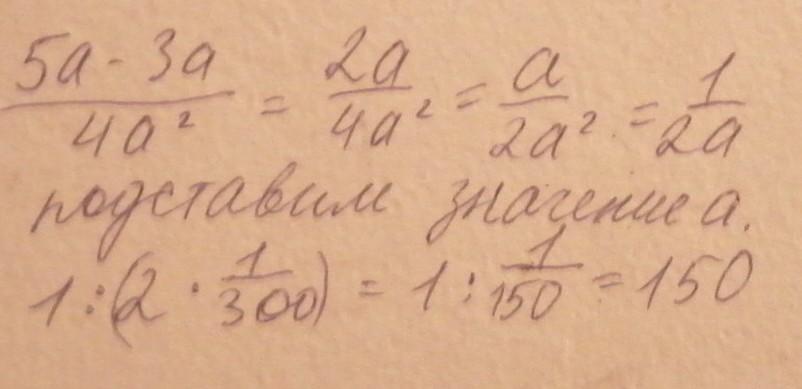 (5a - 3a)/(4a²) = 2a/(4a²) = a/(2a²) = 1/(2a)
подставим значение а.
1:(2 · 1/300) = 1 : 1/150 = 150